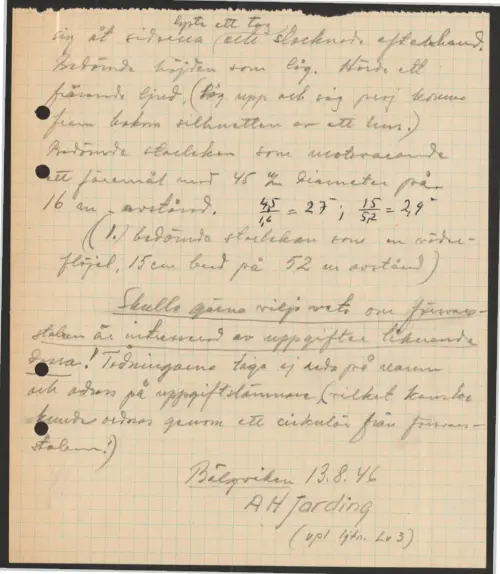 lyste ett tag
sig åt sidorna (och slocknade efterhand.
Bedömde höjden som låg. Hörde ett
fräsande ljud. (Såg upp och såg proj komma
fram bakom silhuetten av ett hus.)
Bedömde storleken som motsvarande
ett föremål med 45 diameter på
16 m avstånd. 4,5/1,6 = 2,8 ; 15/5,2 = 2,9
(1.) bedömde storleken som en väder-
flöjel, 15 cm bred på 52 m avstånd)
Skulle gärna vilja veta om försvars-
staben är intresserad av uppgifter liknande
dessa! Tidningarna taga ej reda på namn
och adress på uppgiftslämnare (vilket kanske
kunde ordnas genom ett cirkulär från försvars-
staben!)
Bälgviken 13.8.46
A H Jarding
(vpl ljtn. Lv 3)